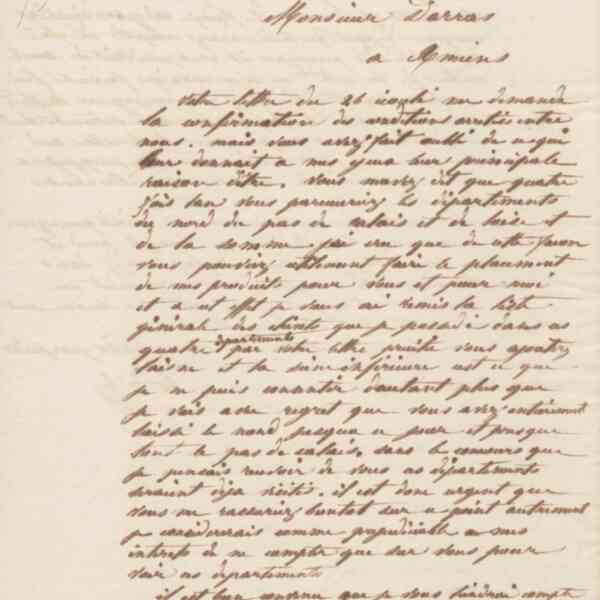 Monsieur Darras
a Amiens
votre lettre du 26 ecoulé me demande
la confirmation des conditions arretées entre
nous. mais vous avez fait oubli de ce qui
leur donnait a mes yeux leur principale
raison detre. vous mavez dit que quatre
fois lan vous parcouriez les départements
du nord du pas de calais et de loise et
de la somme. jai cru que de cette facon
vous pouviez utilement faire le placement
de mes produits pour vous et pour moi
et a cet effet je vous ai remis la liste
générale des clients que je possede dans ces
quatre départements par votre lettre précitée vous ajoutez
laisne et la seine inférieure est ce que
je ne puis consentir dautant plus que
je vois avec regret que vous avez entièrement
laissé le nord jusqua ce jour et presque
tout le pas de calais. dans le concours que
je pensais recevoir de vous ces départements
seraient déja visités. il est donc urgent que
vous me rassuriez bientot sur ce point autrement
je considererais comme préjudiciable a mes
interets de ne compter que sur vous pour
voir ces départements
il est bien convenu que je vous tiendrai compte